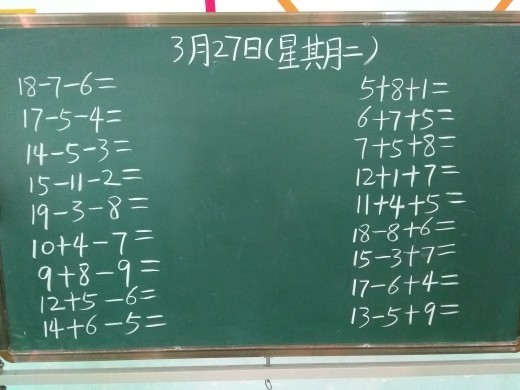 3月27日(星期二)
18-7-6=
17-5-4=
14-5-3=
15-11-2=
19-3-8=
10+4-7=
9+8-9=
12+5-6=
14+6-5=
5+8+1=
6+7+5=
7+5+8=
12+1+7=
11+4+5=
18-8+6=
15-3+7=
17-6+4=
13-5+9=